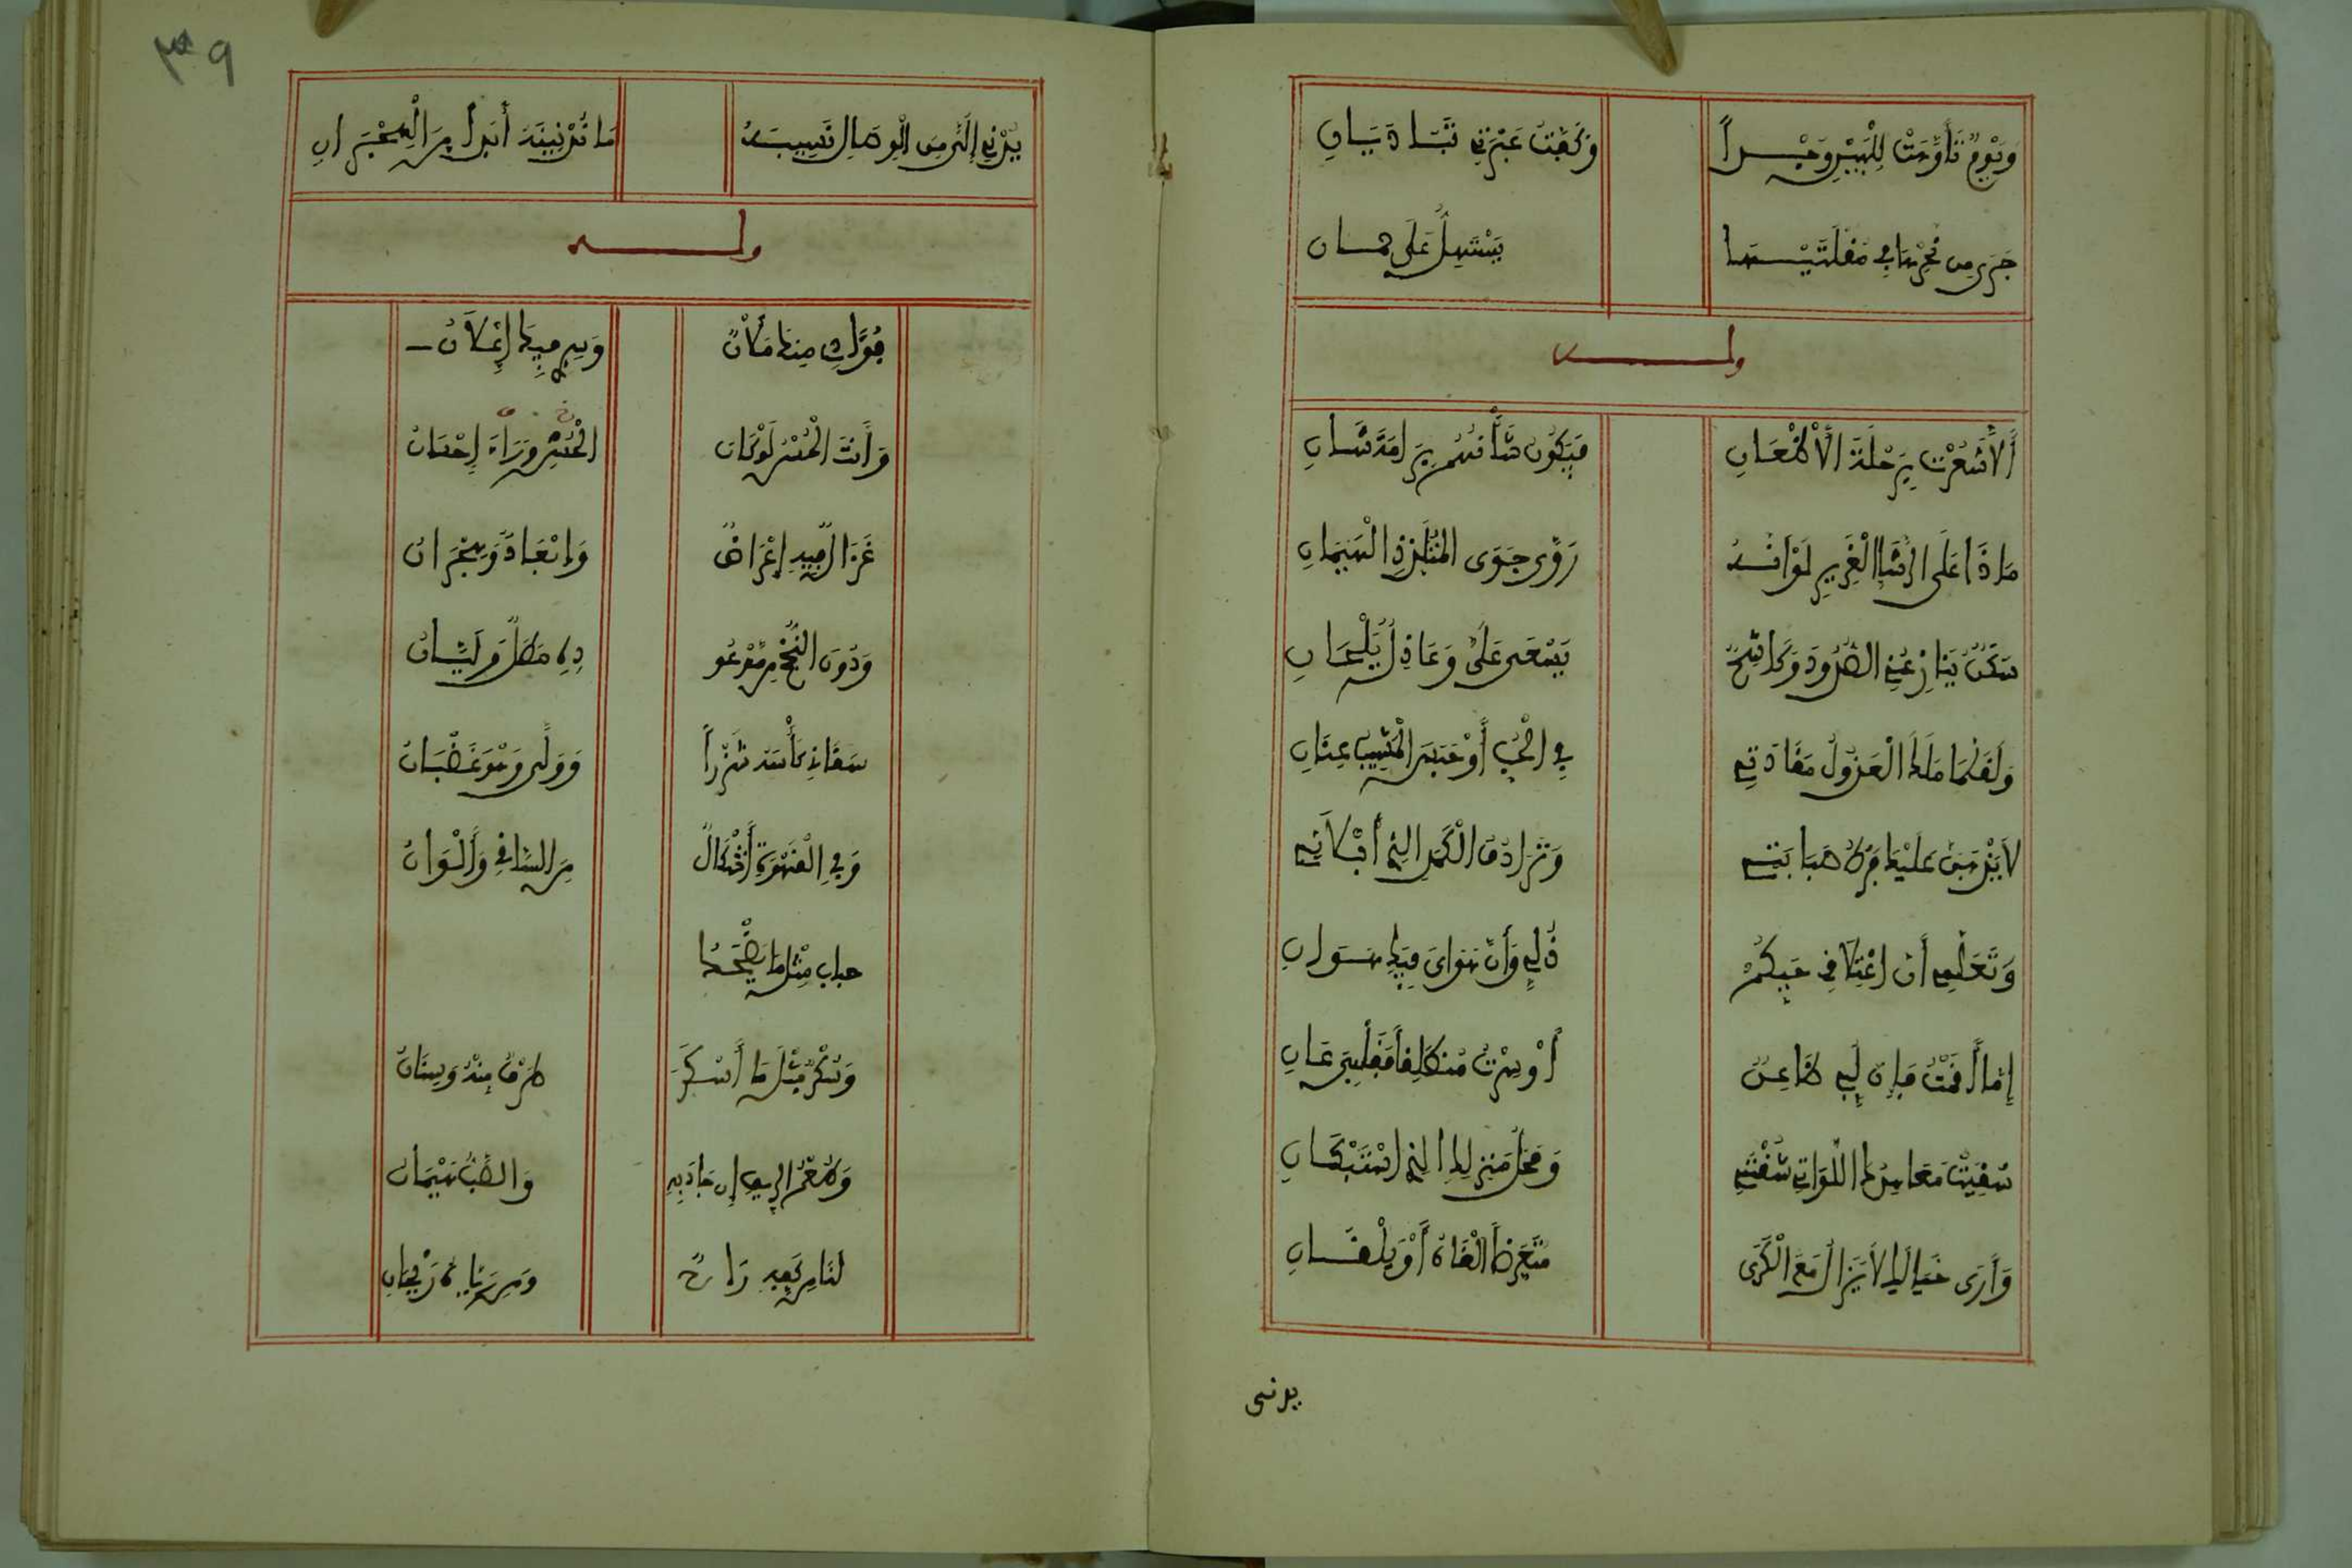 وَيَوْمَ تَأَوَّهَتْ لِلْبَيْنِ وَجْداً وَكَفَّتْ عَبْرَتِي تَبَادَيَانِ
جَرَى مِن نَحْرِهَا فِي مُقْلَتَيْهَا يَسْتَهِلُّ عَلَى جمان
وله
أَلاَ شَعَرْتَ بِرَحْلَةِ الْأَظْعَانِ فَيَكُونَ شَأْنُهُم بِرَامَةَ شَانِ
مَاذَا عَلَى الرَّشَإِ الْغَرِيرِ لَوْ انَّهُ رَوَّى جَوَى الْمُتَلَدِّدِ الْهَيْمَانِ
سَكَنٌ يُنَازِعُنِي الصُّدُودَ وَكَاشِحٌ يَسْعَى عَلَيَّ وَعَاذِلٌ يَلْحَانِ
وَلَقَلَّمَا مَلَكَ الْعَذُولُ مَقَادَتِي فِي الْحُبِّ أَوْ حَبَسَ الْمَشِيبُ عِنَانِ
لاَ يَذْهَبَنَّ عَلَيْكِ فَرْطُ صَبَابَتِي وَتَرَادُفُ الْكَمَدِ الذِي أَبْكَانِي
وَتَعَلَّمِي أَنَّ اعْتِلاَقِي حُبَّكُمْ ذُلِّي وَأَنَّ هَوَايَ فِيكِ هَوَانِ
إِمَّا أَقَمْتُ فَإِنَّ لُبِّي ظَاعِنٌ أَوْ سِرْتُ مُنْطَلِقاً فَقَلْبِي عَانِ
سُقِيَتْ مَعَاهِدُكِ اللَّوَاتِي شُقْنَنِي وَمَحَلُّ مَنْزِلِكِ الذِي اسْتَبْكَانِ
وَأَرَى خَيَالَكِ لاَ يَزَالُ مَعَ الْكَرَى مُتَعَرِّضاً أَلْقَاهُ أَوْ يَلْقَانِ
يدنى
٣٩
يُدْنِي إِلَيَّ مِنَ الْوِصَالِ نَصِيبَهُ مَا تُدْنِينَهُ أَبَداً مِنَ الْهِجْرَانِ
وله
فُؤَادِي مِنكَ مَلآنُ وَسِرِّي فِيكَ إِعْلاَنُ
وَأَنتَ الْحُسْنُ لَوْ كَانَ الْحُسْنِ وَرَاءَ إِحْسَانُ
غَزَالٌ فِيهِ إِعْرَاضٌ وَإِبْعَادٌ وَهِجْرَانُ
وَدُونَ النُّجْحِ مِن مَّوْعُو دِهِ مَطْلٌ وَلَيَّانُ
سَقَانِي كَأْسَهُ شَزْراً وَوَلَّى وَهْوَ غَضْبَانُ
وَفِي الْقَهْوَةِ أَشْكَالٌ مِنَ السَّاقِي وَأَلْوَانُ
حباب مِثْلُ مَا يَضْحَكُ
وَسُكْرٌ مِثْلَ مَا أَسْكَرَ طَرْفٌ مِنْهُ وَسِنَانُ
وَطَعْمُ الرِّيقِ إِن جَادَ بِهِ وَالصَّبُّ هَيْمَانُ
لَنَا مِن كَفِّهِ رَاحٌ وَمِن رَيَّاهُ رَيْحَانِ